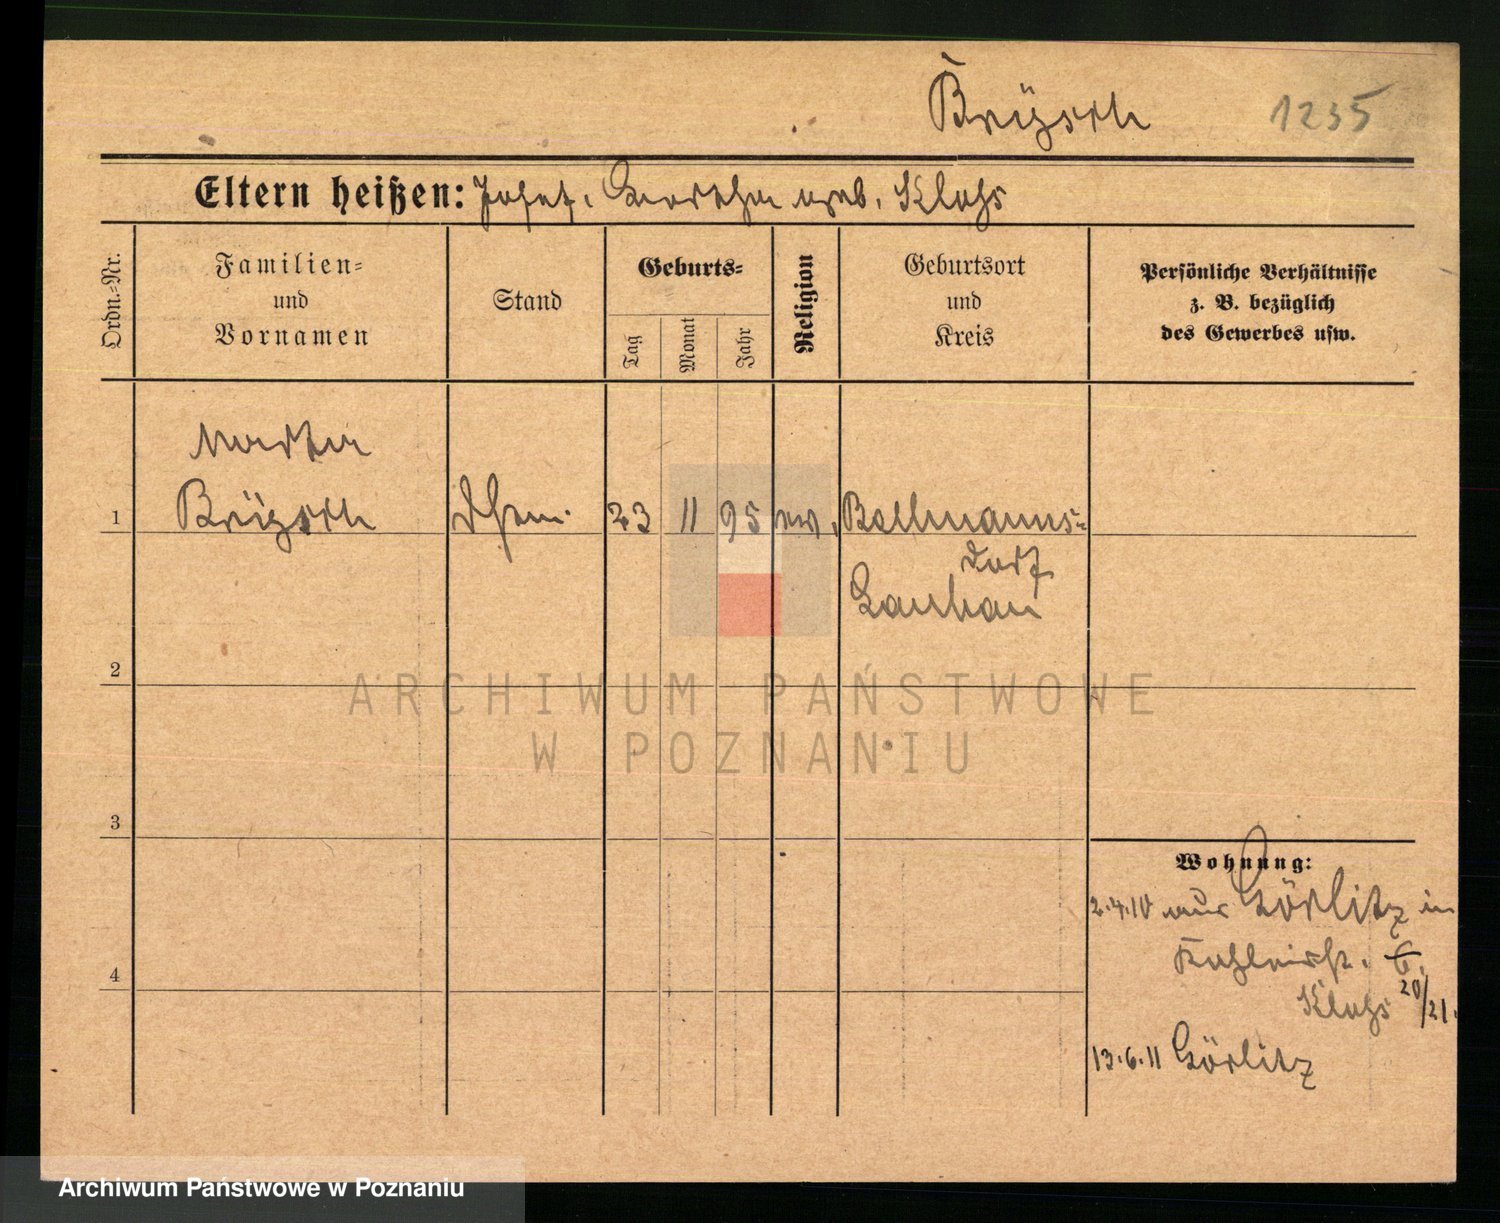 1235
Eltern heißen: Josef, geb. Klahs
Ordn.-Nr.
Familien-
und
Vornamen
Stand
Geburts-
Tag
Monat
Jahr
Religion
Geburtsort
und
Kreis
Persönliche Verhältnisse
z. B. bezüglich
des Gewerbes usw.
Martin
1 23 11 95 ev. Bellmanns-
dorf
Lauban
2
ARCHIWUM PAŃSTWOWE
W POZNANIU
3
Wohnung:
2.4.10 aus Görlitz in
6.
4
Klahs 20/21.
13.6.11 Görlitz
Archiwum Państwowe w Poznaniu